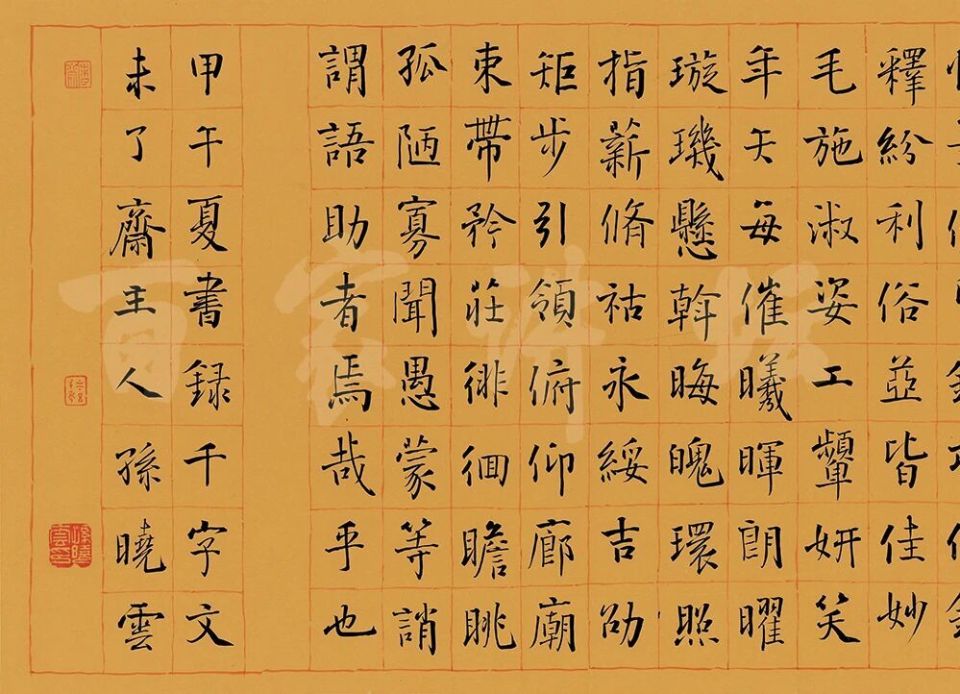 釋紛利俗並皆佳妙
毛施淑姿工顰妍笑
年矢每催曦暉朗曜
璇璣懸斡晦魄環照
指薪脩祜永綏吉劭
矩步引領俯仰廊廟
束帶矜莊徘徊瞻眺
孤陋寡聞愚蒙等誚
謂語助者焉哉乎也
甲午夏書録千字文
未了齋主人孫曉雲
百家讲坛